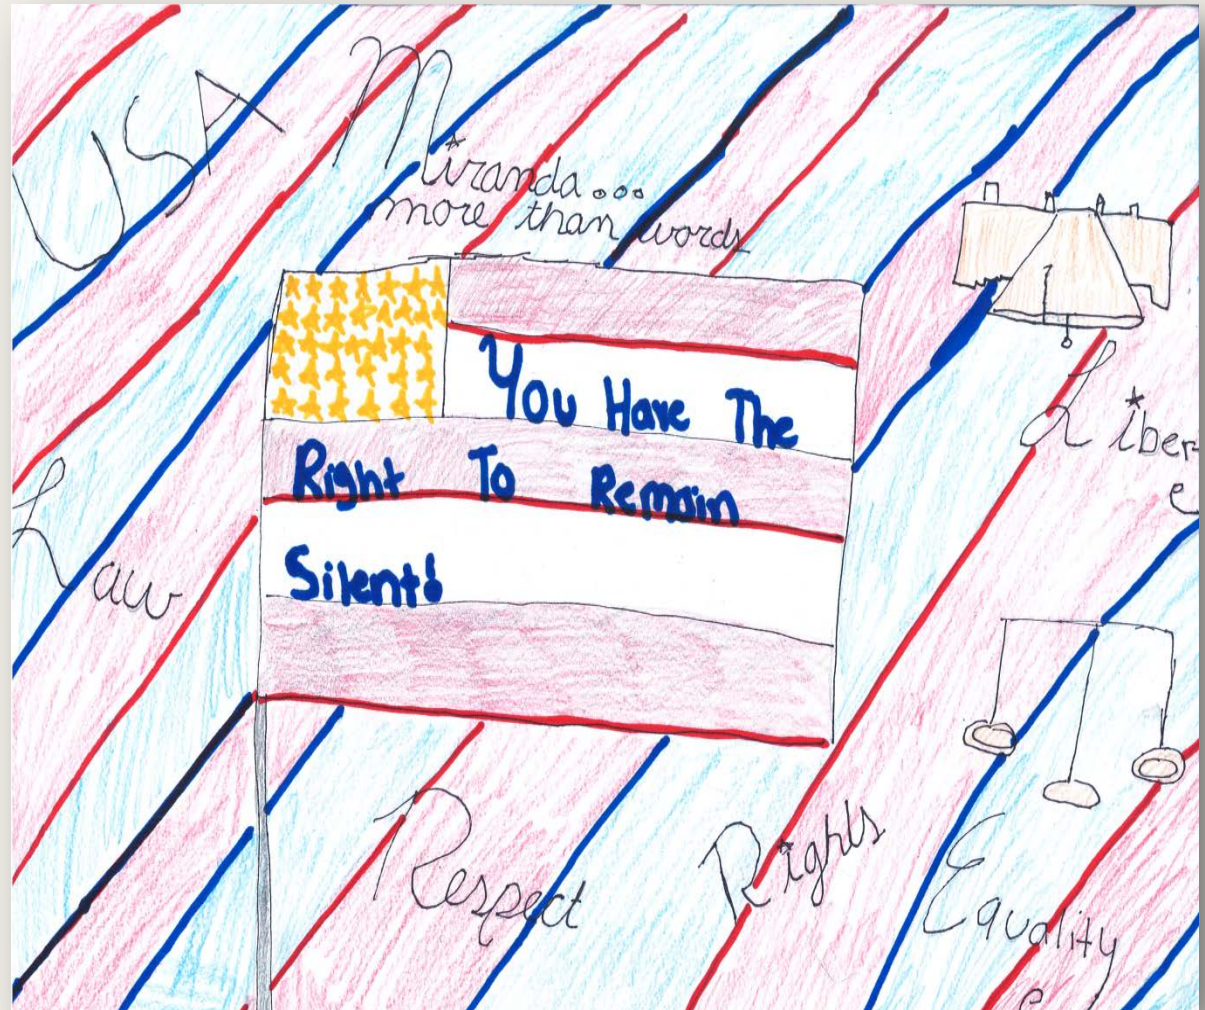 USA
Miranda...
more than words
You Have The
Right To Remain
Silent!
Liber
Law
Respect
Rights
Equality